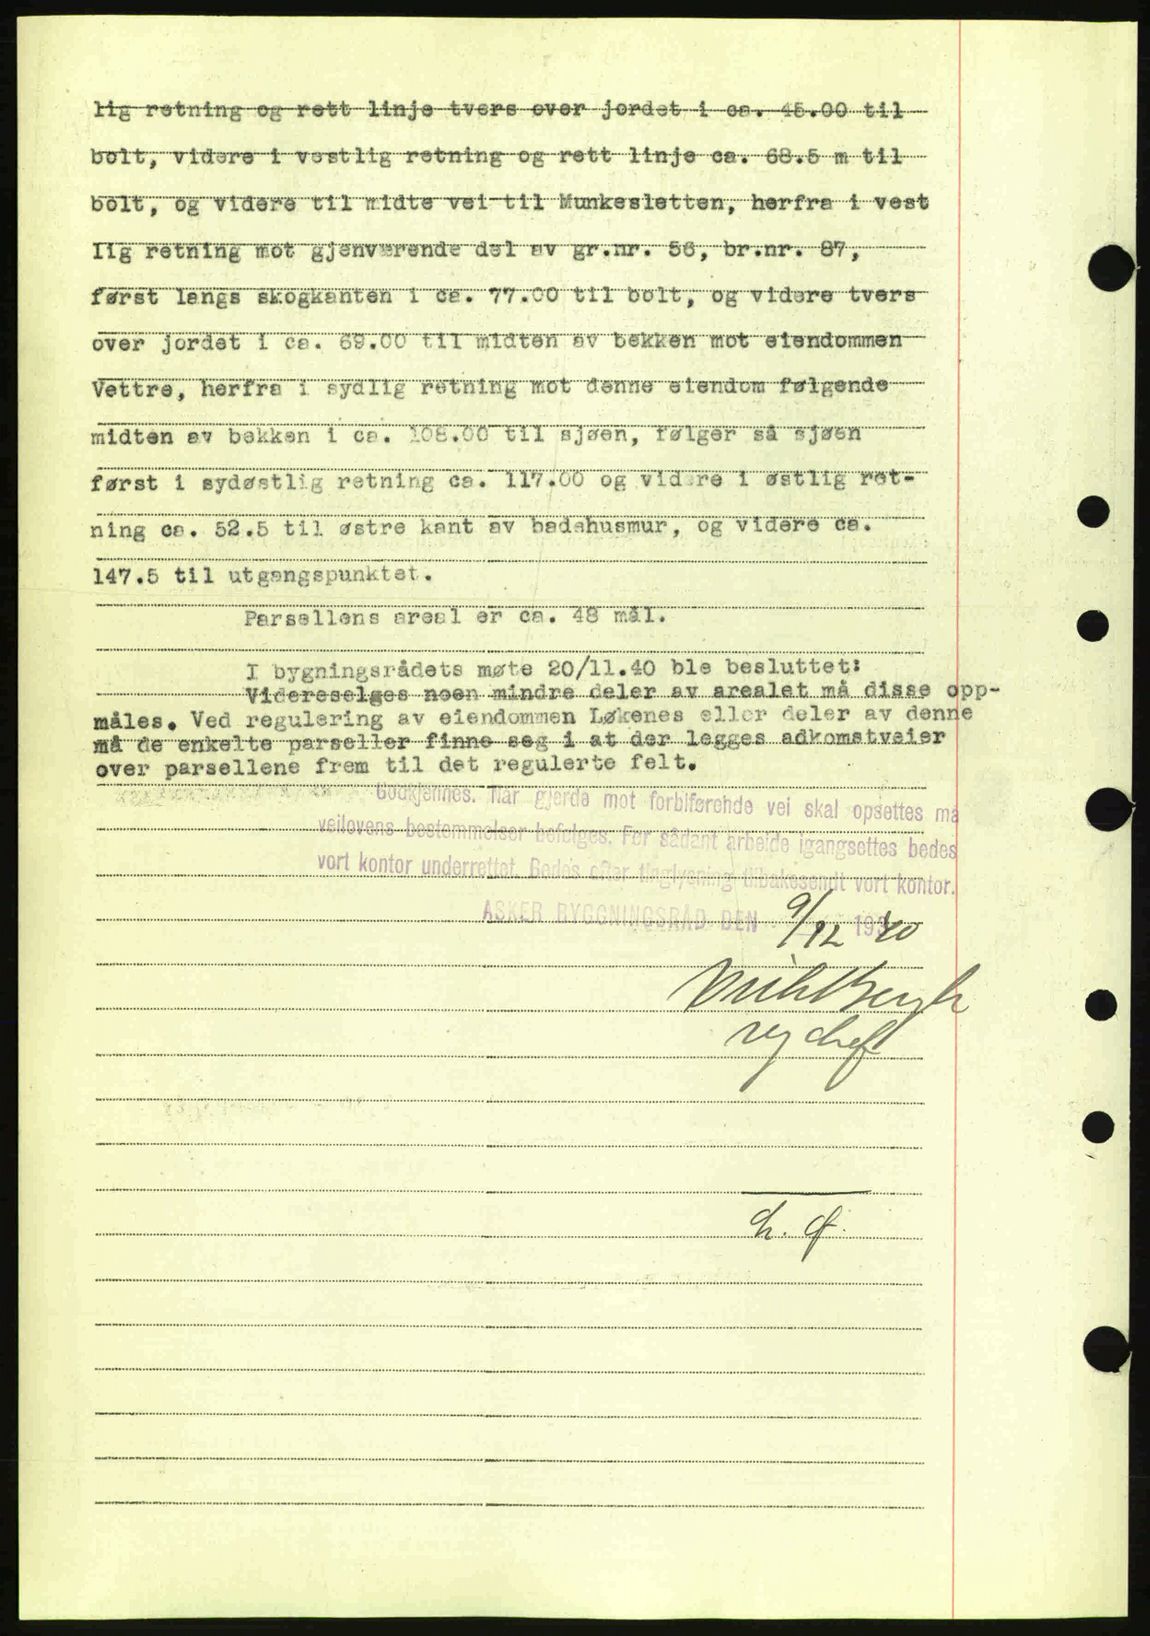 lig retning og rett linje tvers over jordet i ca. 45.00 til
bolt, videre i vestlig retning og rett linje ca. 68.5 m til
bolt, og videre til midte vei til Munkesletten, herfra i vest
lig retning mot gjenværende del av gr.nr. 56, br.nr. 87,
først langs skogkanten i ca. 77.00 til bolt, og videre tvers
over jordet i ca. 69.00 til midten av bekken mot eiendommen
Vettre, herfra i sydlig retning mot denne eiendom følgende
midten av bekken i ca. 108.00 til sjøen, følger så sjøen
først i sydøstlig retning ca. 117.00 og videre i østlig ret-
ning ca. 52.5 til østre kant av badehusmur, og videre ca.
147.5 til utgangspunktet.
Parsellens areal er ca. 48 mål.
I bygningsrådets møte 20/11.40 ble besluttet:
Videreselges noen mindre deler av arealet må disse opp-
måles. Ved regulering av eiendommen Løkenes eller deler av denne
må de enkelte parseller finne seg i at der legges adkomstveier
over parsellene frem til det regulerte felt.
Godkjennes. Når gjerde mot forbiførende vei skal opsettes må
veilovens bestemmelser befølges. Før sådant arbeide igangsettes bedes
vort kontor underrettet. Bedes efter tinglysning tilbakesendt vort kontor.
ASKER BYGGNINGSRÅD DEN 9/12 1940
reg chef